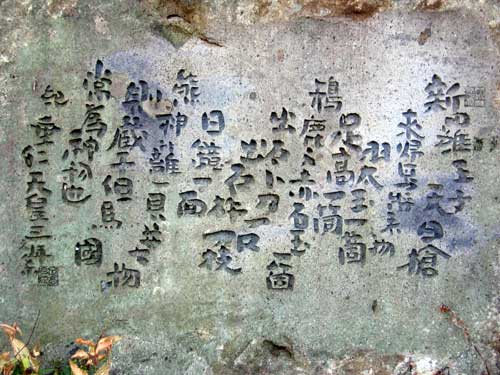 新羅王子天日槍
来帰焉将来物
羽太玉一箇
足高玉一箇
鵜鹿々赤石玉一箇
出石小刀一口
出石桙一枝
日鏡一面
熊神籬一具并七物
則蔵于但馬國
常為神物也
紀 垂仁天皇三年